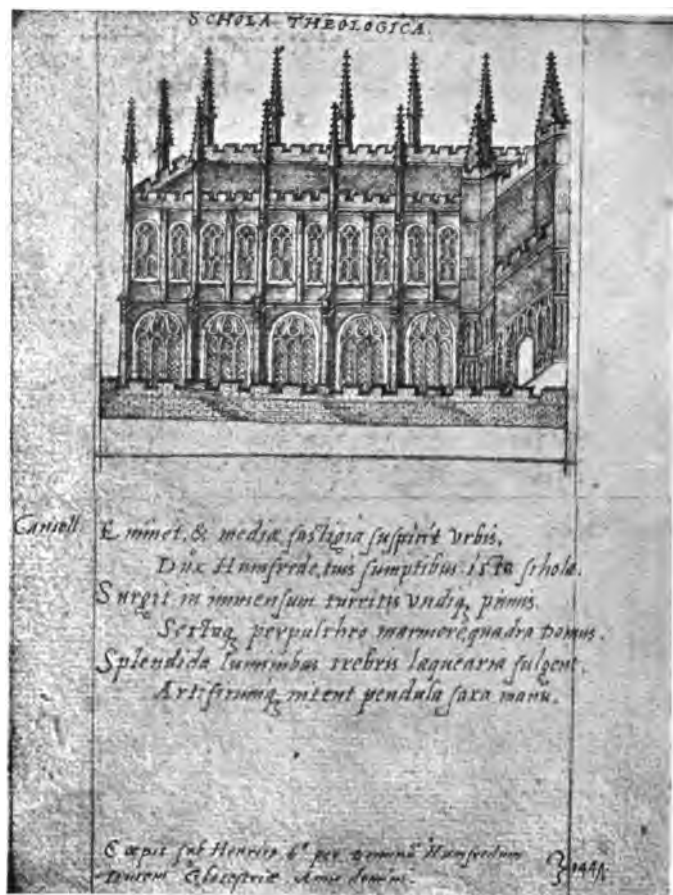 SCHOLA THEOLOGICA.
Cancell.
Eminet, & mediæ fastigia suspicit urbis,
Dux Humfrede, tuis sumptibus ista schola.
Surgit in immensum turritis undiq, pinnis.
Sectaq, perpulchro marmore quadra domus.
Splendida luminibus crebris laquearia fulgent.
Artificumq, nitent pendula saxa manu.
Cæpit sub Henrico 6° per dominū Humfredum
ducem Glocestriæ. Anno domini.